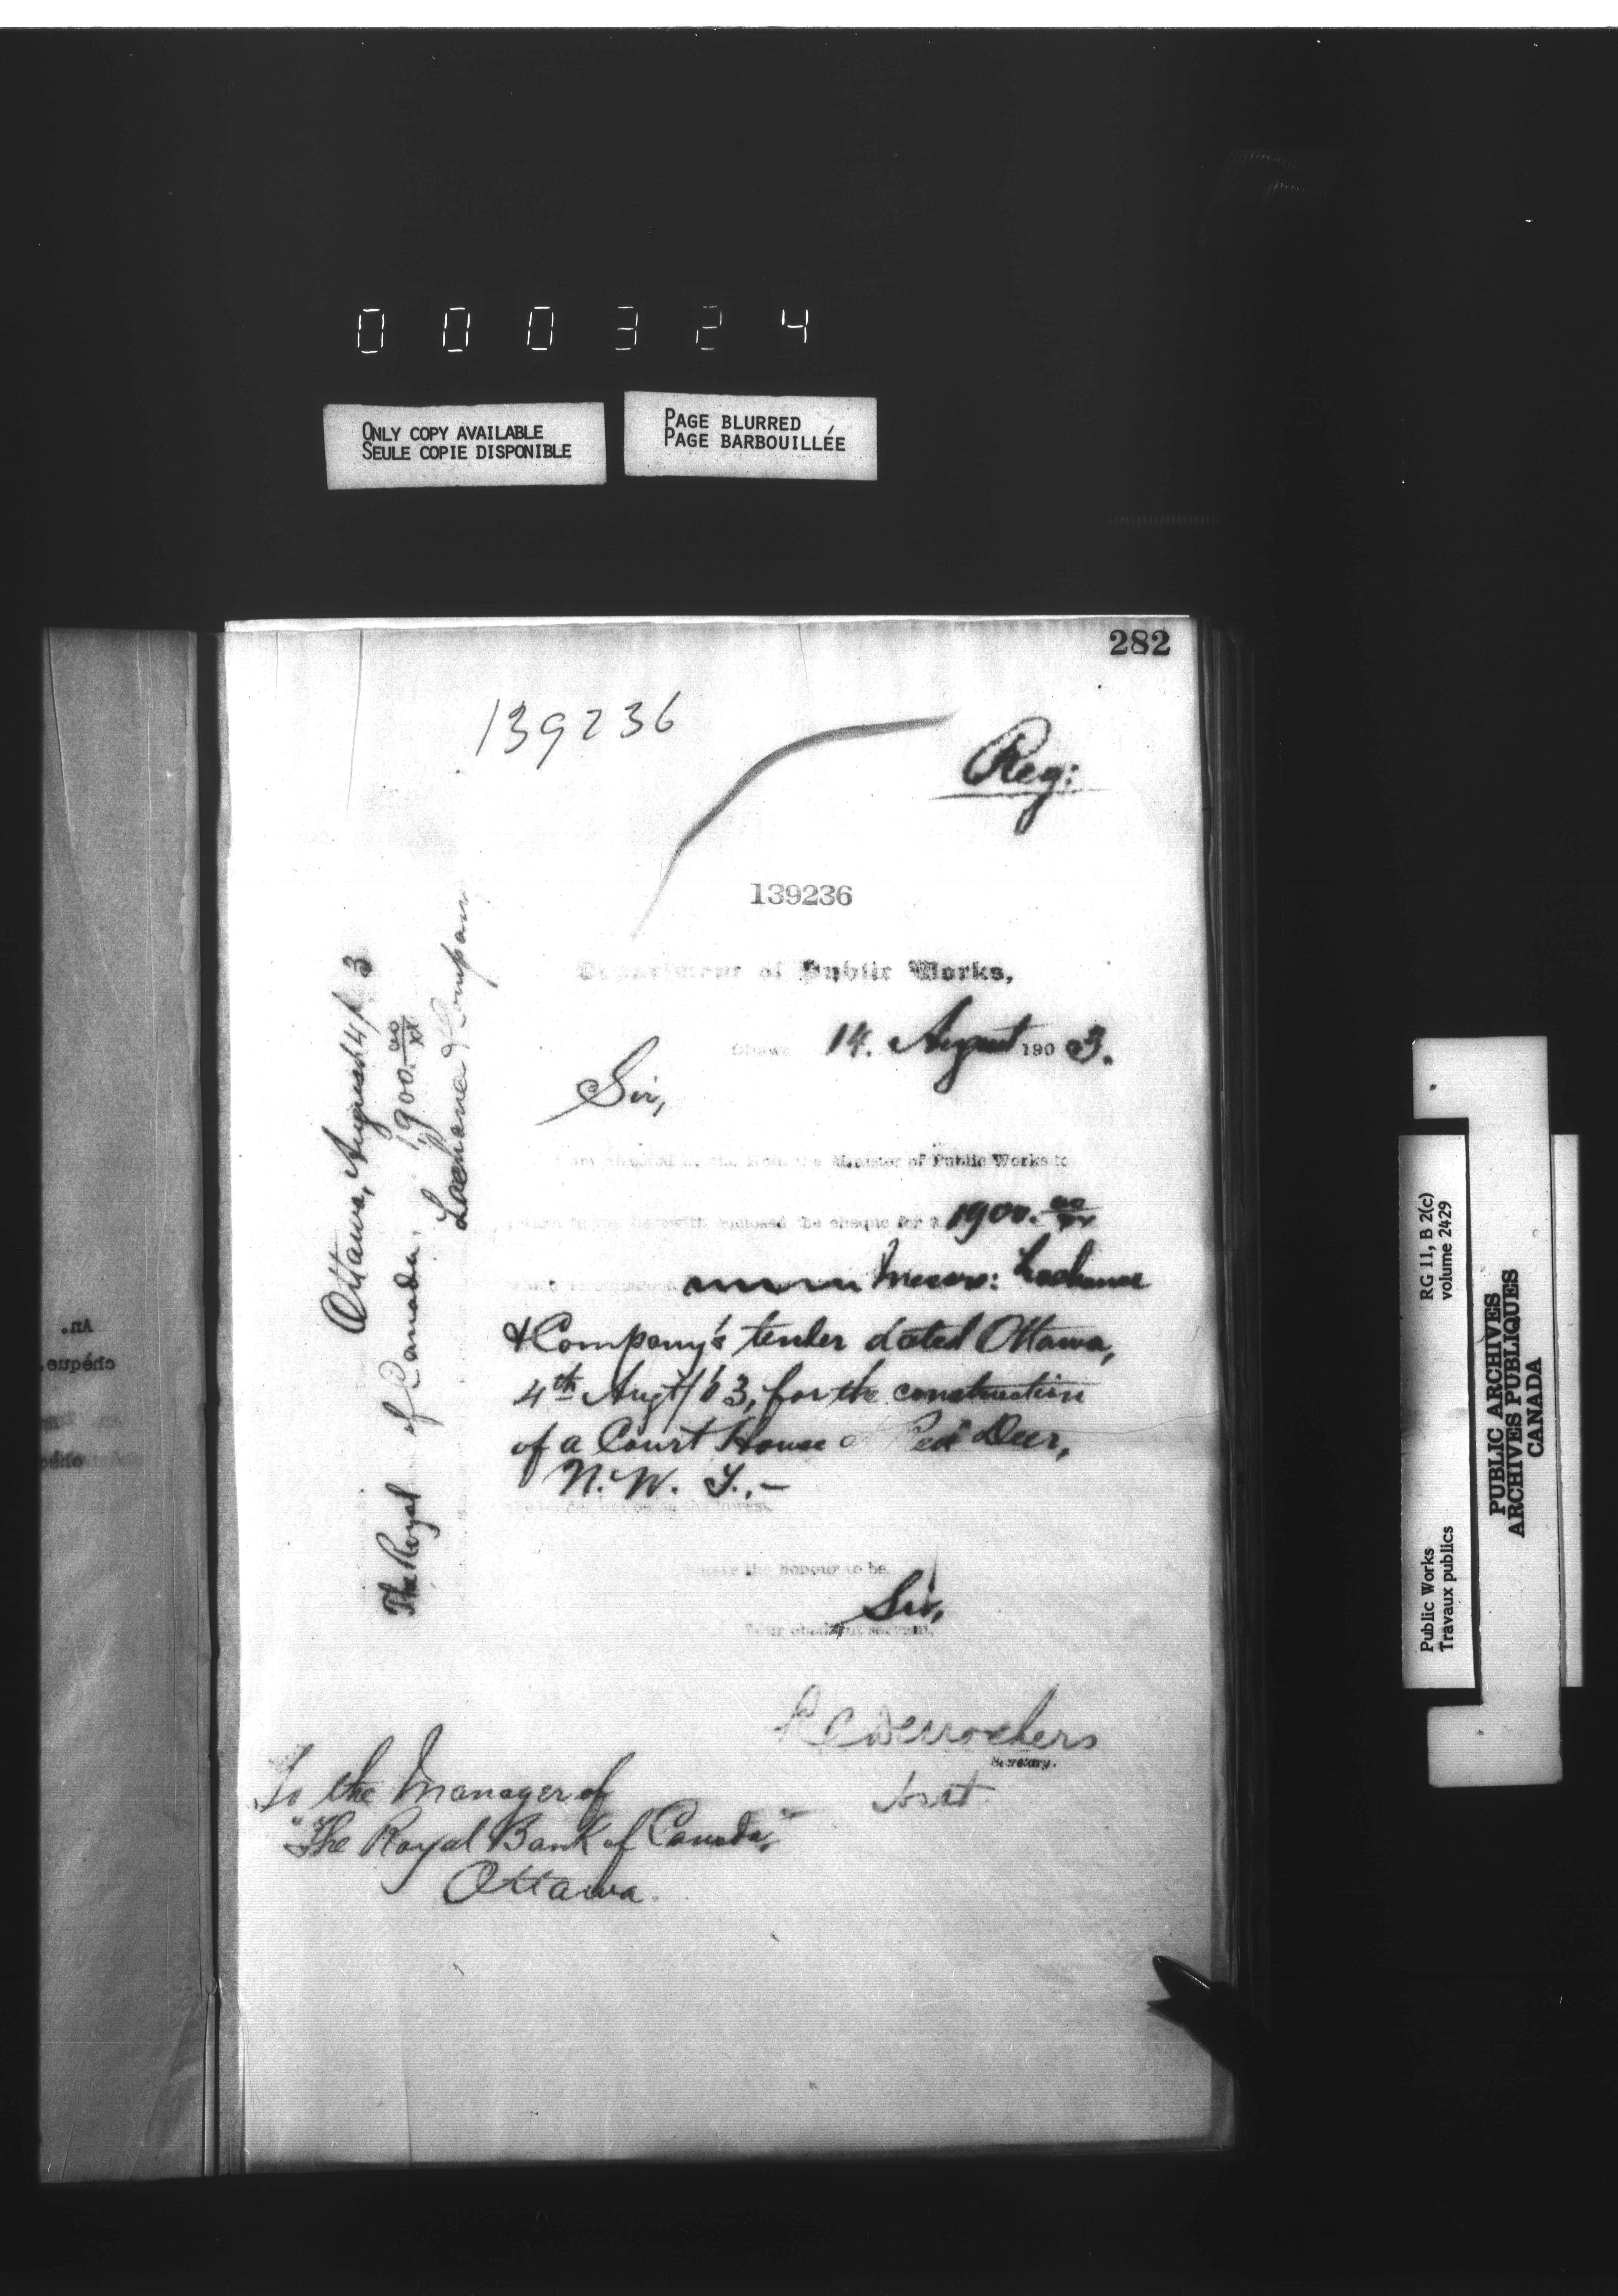 000324
ONLY COPY AVAILABLE
SEULE COPIE DISPONIBLE
PAGE BLURRED
PAGE BARBOUILLÉE
282
139236
Reg:
139236
Department of Public Works,
Ottawa 14. August 1903.
Sir,
the Minister of Public Works to
return to you herewith enclosed the cheque for $ 1900.00/xx
Messrs: Lachance
& Company's tender dated Ottawa,
4th Augt/03, for the construction
of a Court House at Red Deer,
N.W.T.,-
have the honour to be,
Sir,
Your obedient servant,
R C Desrochers
Secretary.
Asst.
To the Manager of
"The Royal Bank of Canada,"
Ottawa.
Ottawa, August 4/03
The Royal of Canada, 1900.00/xx
Lachance & Company
An.
chéque
RG 11, B 2(c)
volume 2429
Public Works
Travaux publics
PUBLIC ARCHIVES
ARCHIVES PUBLIQUES
CANADA